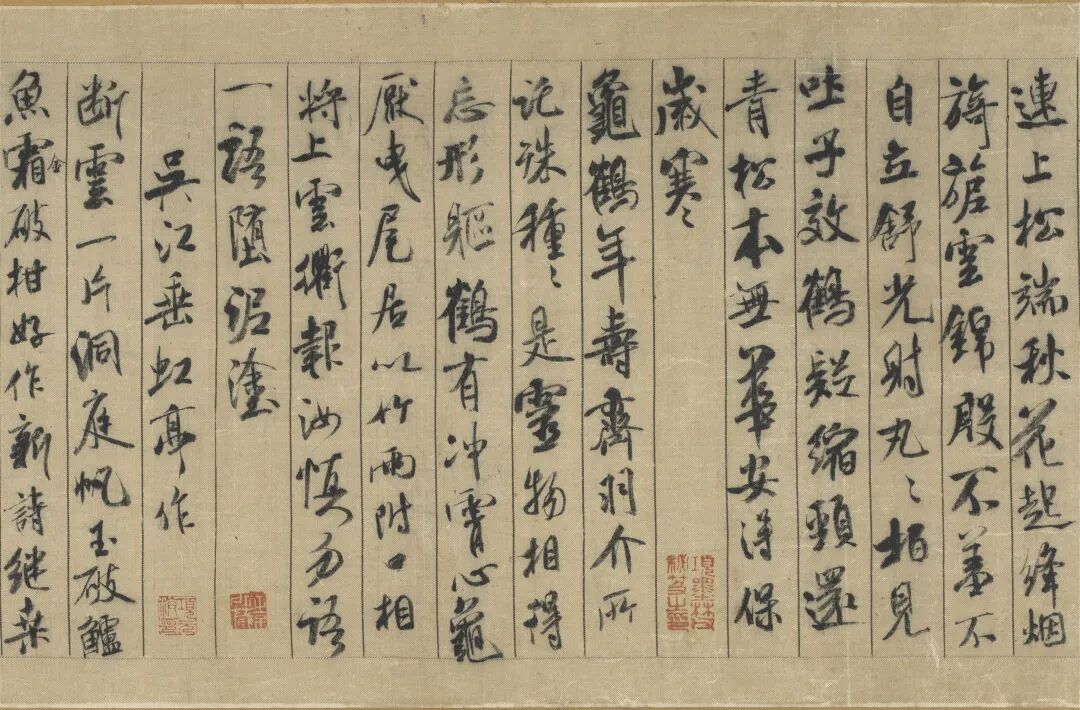 連上松端秋花起絳烟
旖旎雲錦殷不羞不
自立舒光射丸〻柏見
吐子效鶴疑縮頸還
青松本無華安得保
歲寒〻
龜鶴年壽齊羽介所
託殊種〻是靈物相得
忘形軀鶴有冲霄心龜
厭曳尾居以竹兩附口相
將上雲衢報汝慎勿語
一語墮泥塗
吳江垂虹亭作
斷雲一片洞庭帆玉破鱸
魚霜金破柑好作新詩継桑
項墨林父祕笈之印